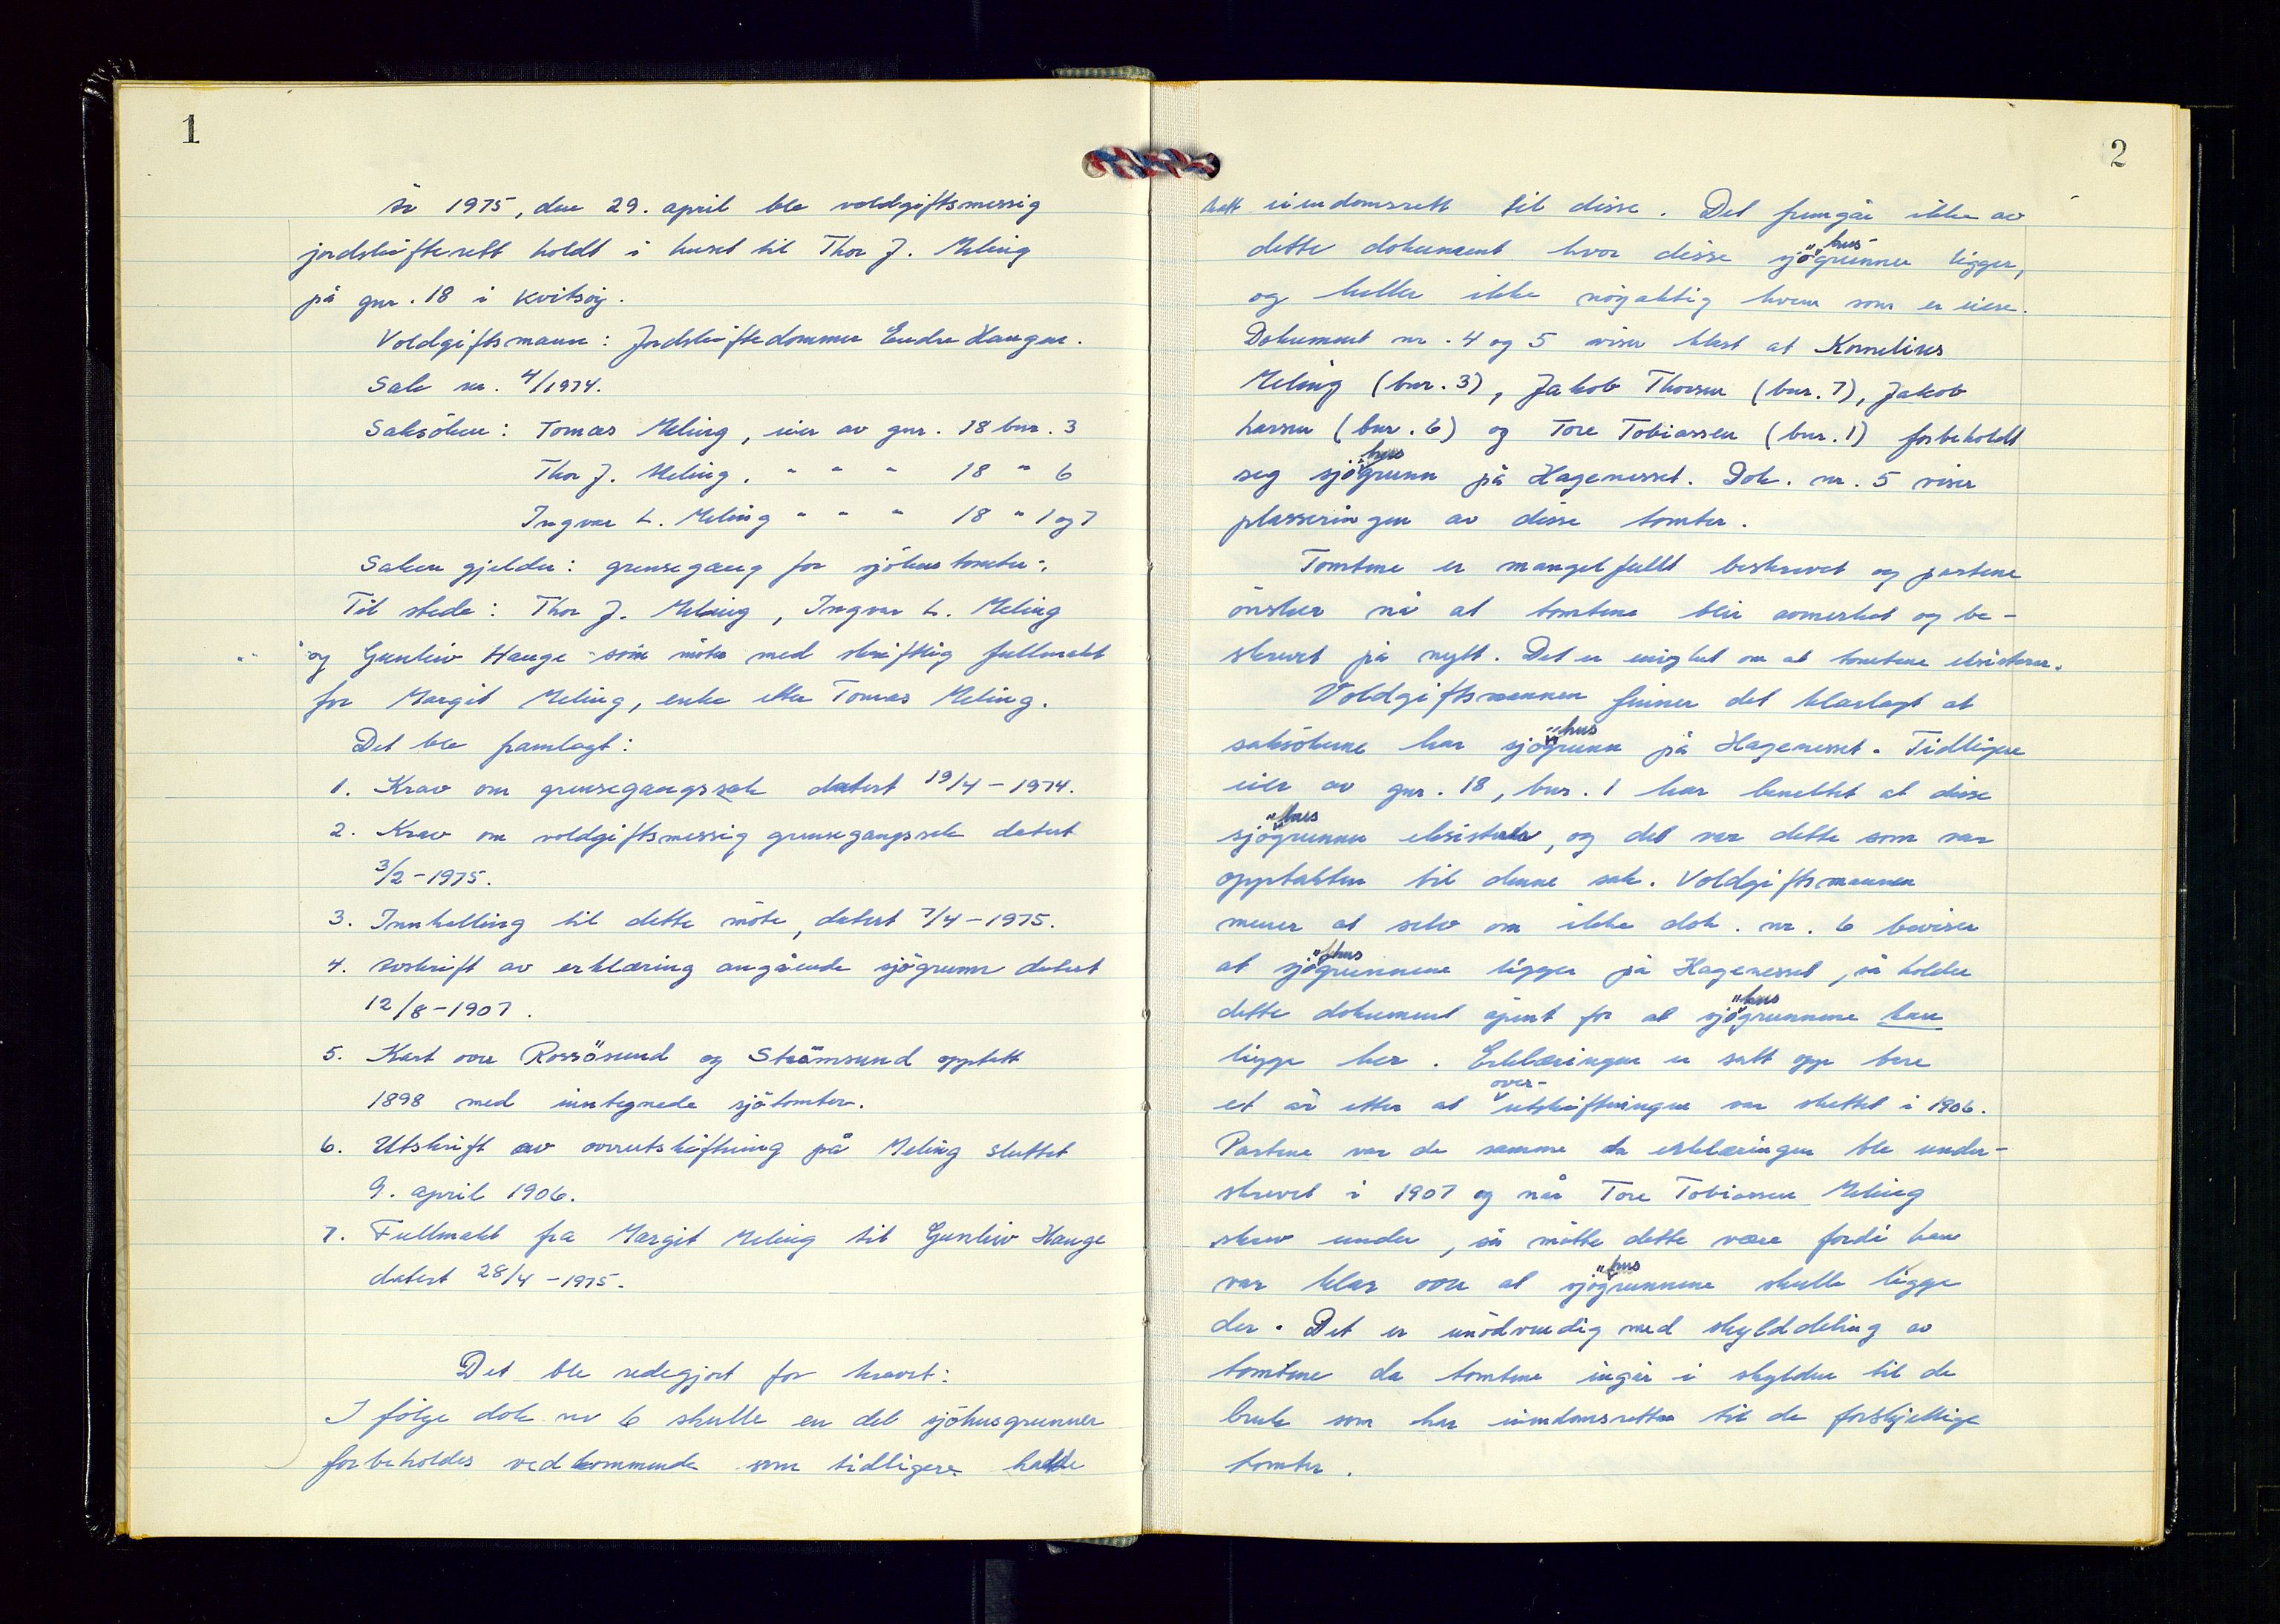 1
År 1975, den 29. april ble voldgiftsmessig
jordskifterett holdt i huset til Thor J. Meling
på gnr. 18 i Kvitsøy.
Voldgiftsmann: Jordskiftedommer Endre Haugen.
Sak nr. 4/1974.
Saksöker: Tomas Meling, eier av gnr. 18 bnr. 3
Thor J. Meling, " " " 18 " 6
Ingvar L. Meling " " " 18 " 1 og 7
Saken gjelder: grensegang for sjöhustomter.
Til stede: Thor J. Meling, Ingvar L. Meling
og Gunleiv Hauge som möter med skriftlig fullmakt
for Margit Meling, enke etter Tomas Meling.
Det ble framlagt:
1. Krav om grensegangssak datert 19/4-1974.
2. Krav om voldgiftsmessig grensegangssak datert
3/2-1975.
3. Innkalling til dette möte, datert 7/4-1975.
4. Avskrift av erklæring angående sjögrunn datert
12/8-1907.
5. Kart over Rossösund og Strömsund opptatt
1898 med inntegnede sjötomter.
6. Utskrift av overutskiftning på Meling sluttet
9. april 1906.
7. Fullmakt fra Margit Meling til Gunleiv Hauge
datert 28/4-1975.
Det ble redegjort for kravet:
I følge dok nr 6 skulle en del sjöhusgrunner
forbeholdes vedkommende som tidligere hadde
2
hatt eiendomsrett til disse. Det fremgår ikke av
dette dokument hvor disse sjö"hus"grunner ligger,
og heller ikke nöyaktig hvem som er eiere.
Dokument nr. 4 og 5 viser klart at Kornelius
Meling (bnr. 3), Jakob Thorsen (bnr. 7), Jakob
Larsen (bnr. 6) og Tore Tobiassen (bnr. 1) forbeholdt
seg sjöhusgrunn på Hagenesset. Dok. nr. 5 viser
plasseringen av disse tomter.
Tomtene er mangelfullt beskrevet og partene
önsker nå at tomtene blir avmerket og be-
skrevet på nytt. Det er enighet om at tomtene eksisterer.
Voldgiftsmannen finner det klarlagt at
saksökerne har sjöhusgrunn på Hagenesset. Tidligere
eier av gnr. 18, bnr. 1 har benektet at disse
sjöhusgrunner eksisterte, og det var dette som var
opptakten til denne sak. Voldgiftsmannen
mener at selv om ikke dok. nr. 6 beviser
at sjöhusgrunnene ligger på Hagenesset, så holder
dette dokument åpent for at sjöhusgrunnene kan
ligge her. Erklæringen er satt opp bare
et år etter at over-utskiftningen var sluttet i 1906.
Partene var de samme da erklæringen ble under-
skrevet i 1907 og når Tore Tobiassen Meling
skrev under, så måtte dette være fordi han
var klar over at sjöhusgrunnene skulle ligge
der. Det er unödvendig med skylddeling av
tomtene da tomtene ingår i skylden til de
bruk som har eiendomsretten til de forskjellige
tomter.